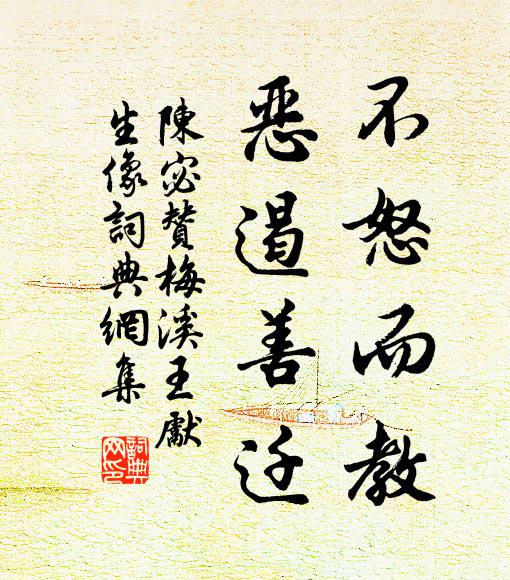 不怒而教
惡遏善迁
陳宓贊梅溪王獻
生像詞典網集
詞典
网印